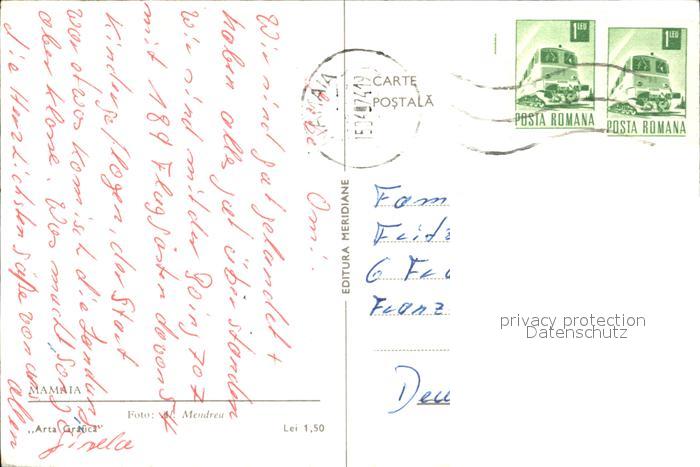 Liebe Omi.
Wir sind gut gelandet +
haben alles gut überstanden
Wir sind mit der Boing 707
mit 189 Fluggästen davon 54
Kinder geflogen, der Start
war etwas komisch die Landung
aber klasse. Was macht
die Herzlichsten Grüße von uns
allen
Gisela
MAMAIA
Foto: Al. Mendrea
„Arta Grafică"
Lei 1,50
EDITURA MERIDIANE
CARTE
POȘTALĂ
MAMAIA
1 LEU
POSTA ROMANA
1 LEU
POSTA ROMANA
Fam
6 Fra
Franz
Deu
privacy protection
Datenschutz